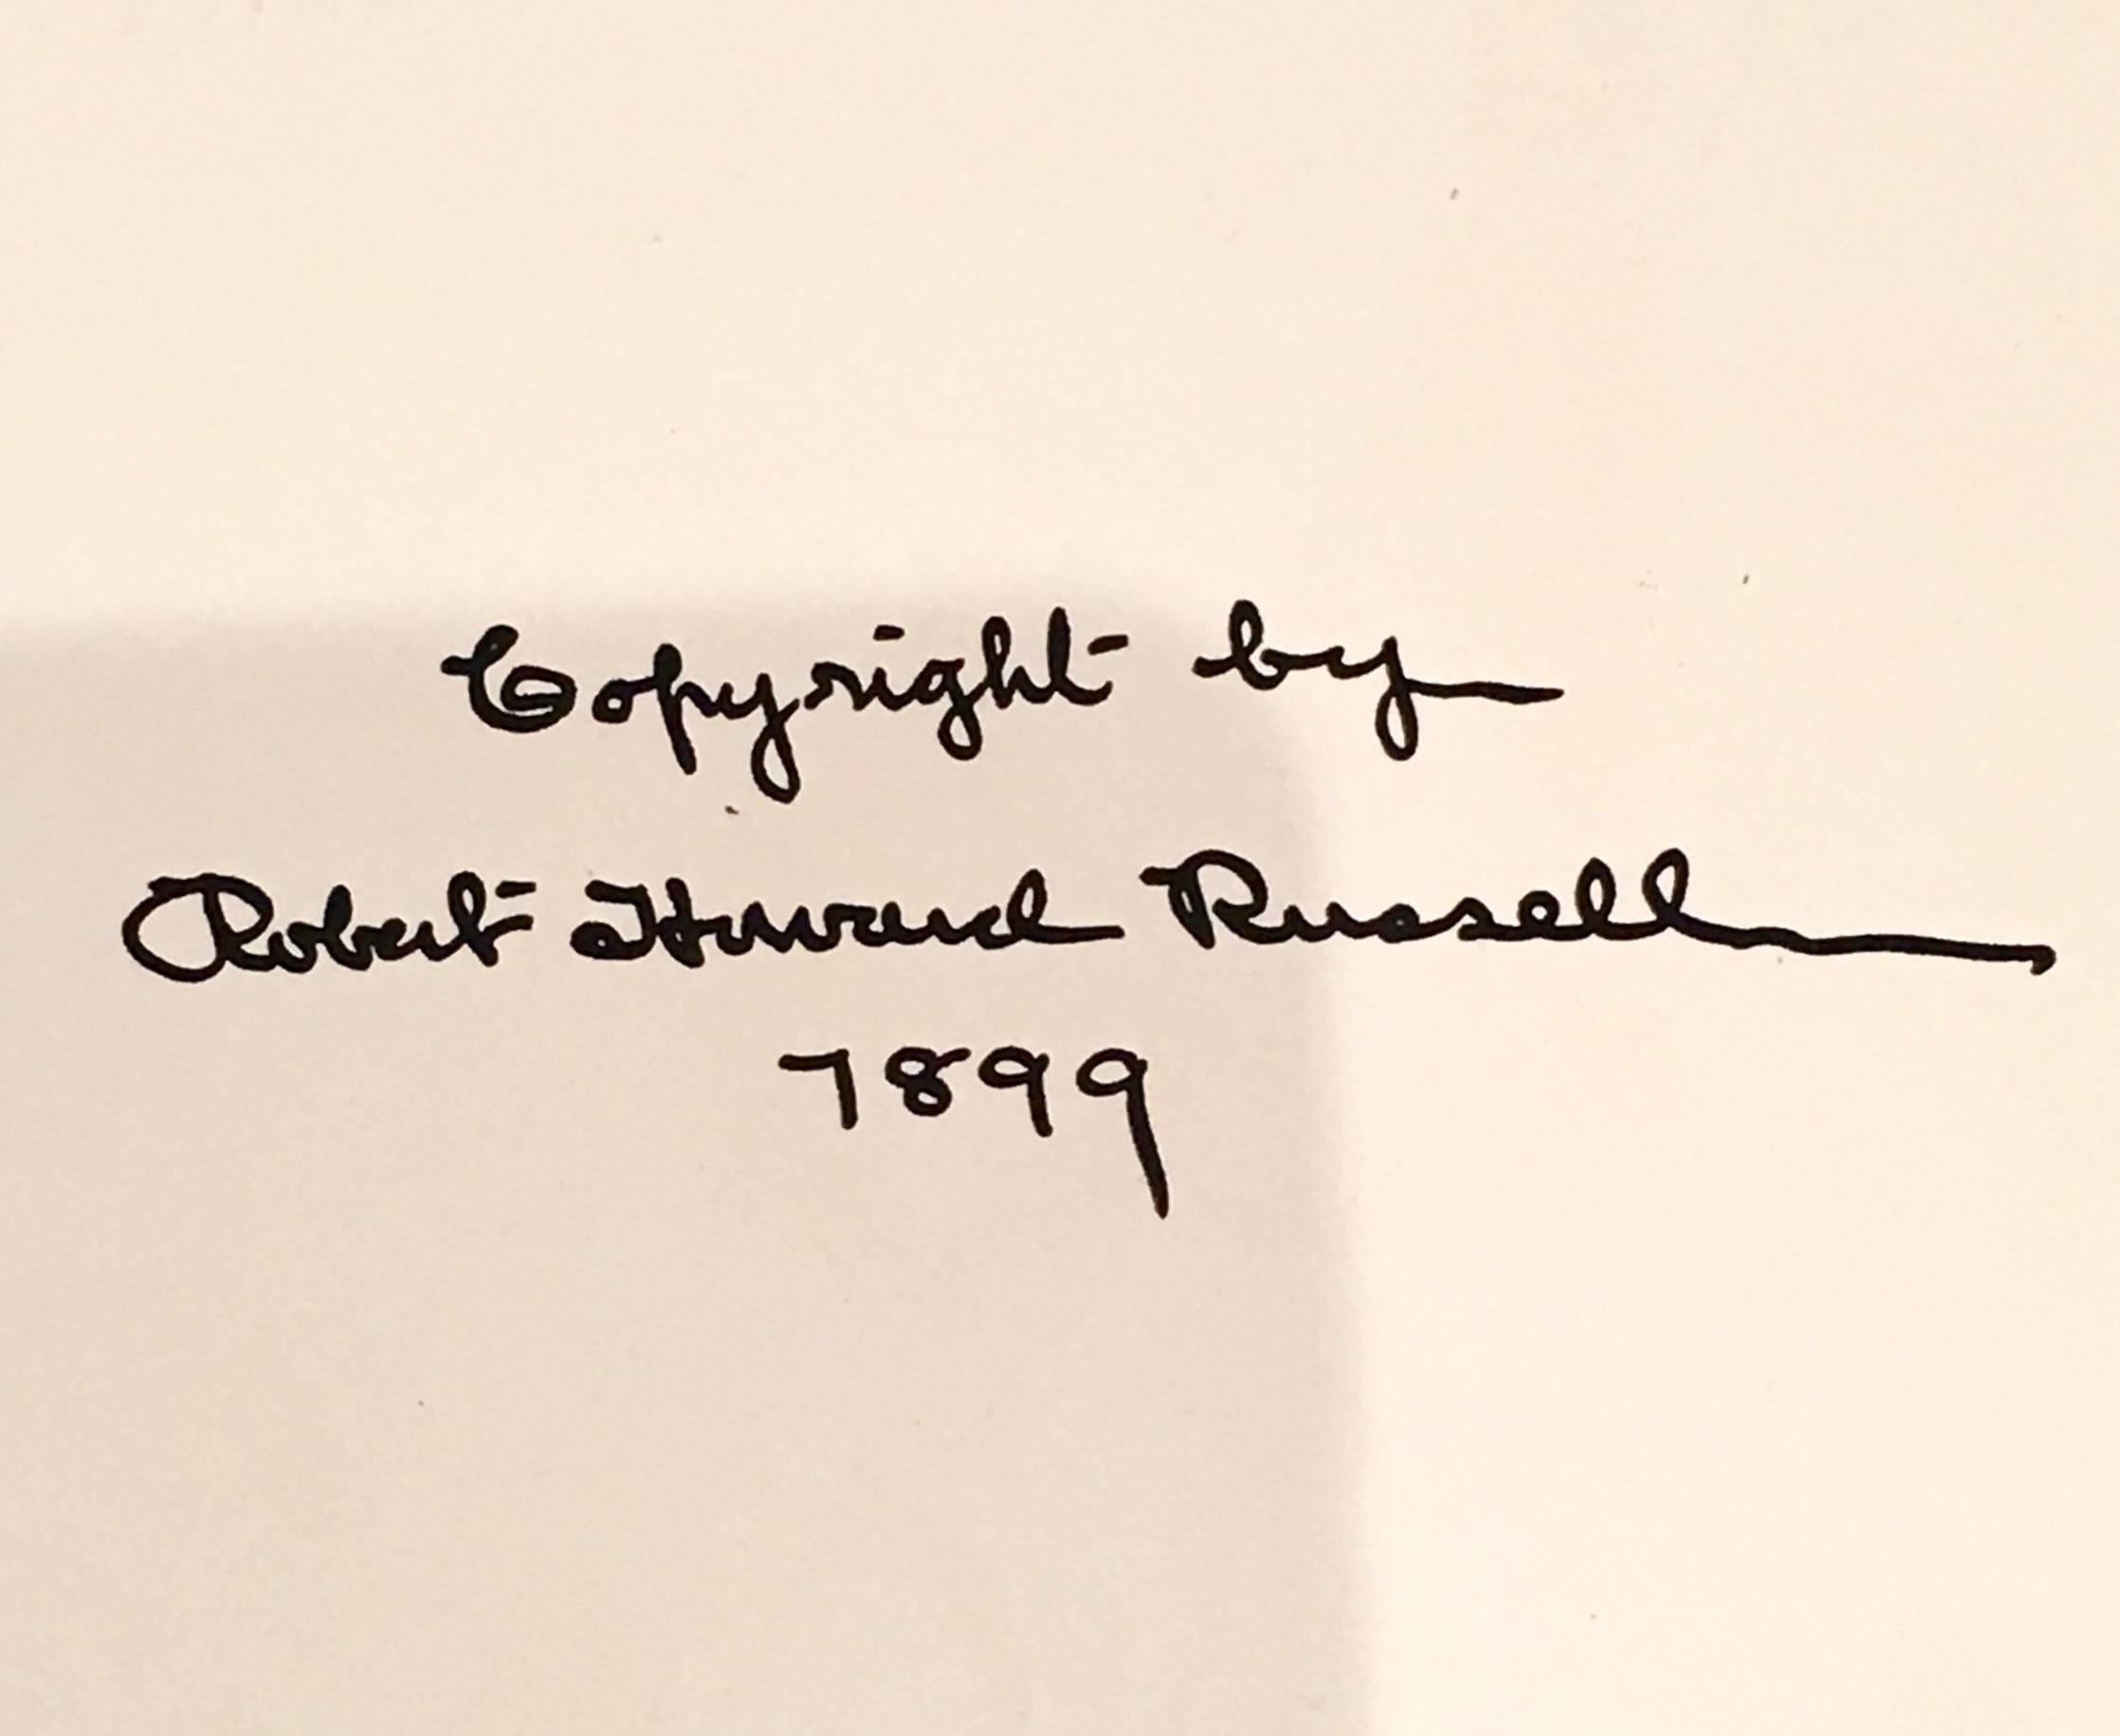 Copyright by
Robert Howard Russell
1899